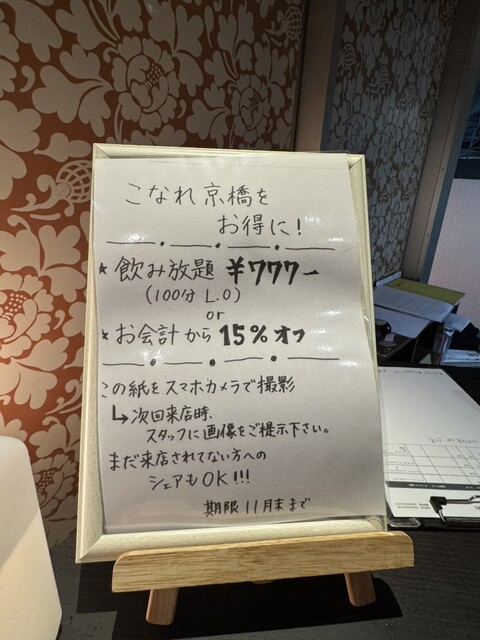 こなれ京橋を
お得に!
★飲み放題 ¥777ー
(100分 L.O)
or
★お会計から 15%オフ
この紙をスマホカメラで撮影
↳次回来店時、
スタッフに画像をご提示下さい。
まだ来店されてない方への
シェアもOK!!!
期限 11月末まで